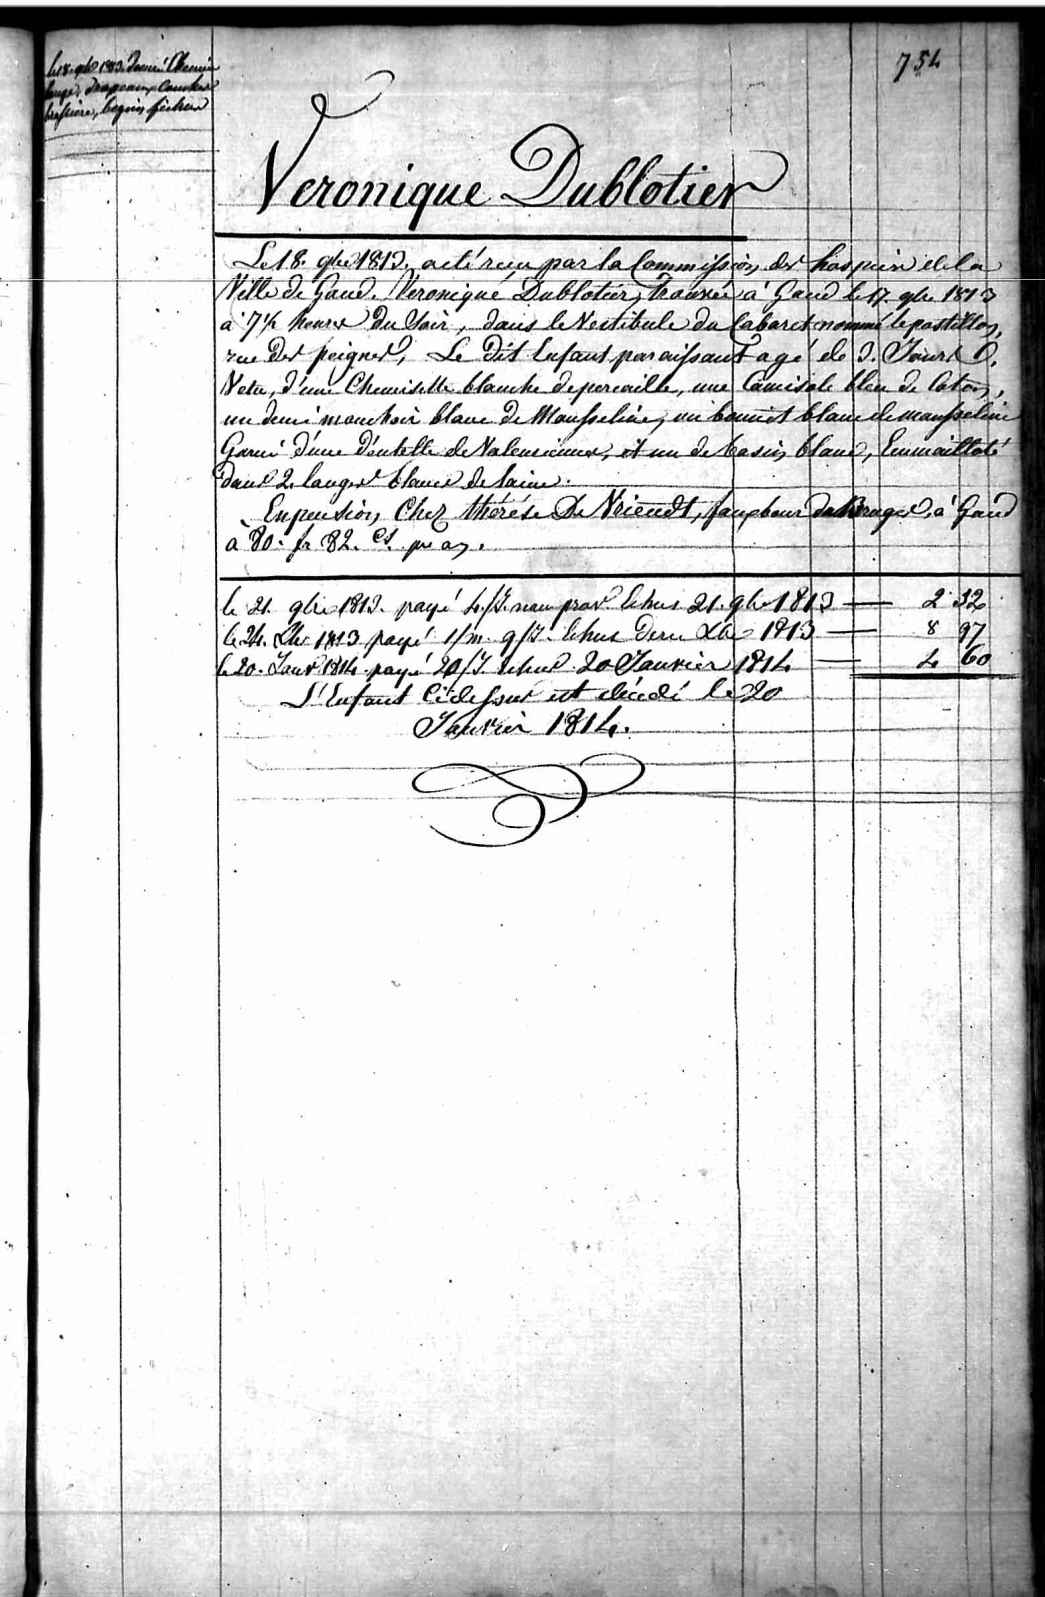 754
le 18 gbre 1813. donné Chemise
langes, drapeaux, couches
brassière, beguin, fichu
Veronique Dublotier
Le 18. gbre 1813. a été reçu par la Commission des hospices de la
Ville de Gand. Veronique Dublotier, trouvée à Gand le 17. gbre 1813
à 7 1/2 heures du Soir, dans le Vestibule du Cabaret nommé le postillon,
rue des peignes, Le dit Enfant paraissant agé de 3. Jours
Vetu, d'une Chemisette blanche de percaille, une Camisole bleu de Coton,
un demi mouchoir blanc de Mousseline, un bonnet blanc de mousseline
Garni d'une dentelle de Valenciennes, et un de basin blanc, Emmailloté
dans 2. langes blancs de laine.
En pension Chez thérése De Vriendt, fauxbour de Bruges, à Gand
à 80. fr 82. cs. par an.
le 21. gbre 1813. payé 4/J. echus 21. gbre 1813 — 2 32
le 24. Xbre 1813 payé 1/m. 9/J. echus Dern Xbre 1813 — 8 97
le 20. Janv 1814 payé 20/J. echus 20 Janvier 1814 — 4 60
L'Enfant Ci dessus est décédé le 20
Janvier 1814.